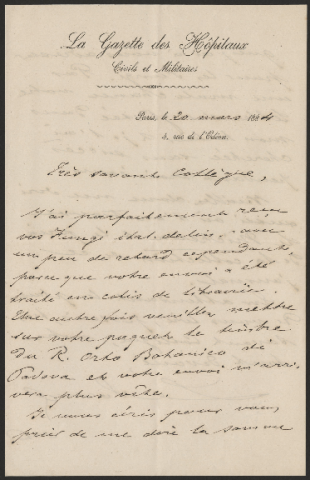 La Gazette des Hôpitaux
Civils et Militaires
Paris, le 20 mars 1884
3, rue de l'Odéon.
Très savant Collègue,
J'ai parfaitement reçu
vos Fungi ital. delin. avec
un peu de retard cependant,
parce que votre envoi a été
traité en colis de librairie.
Une autre fois veuillez mettre
sur votre paquet le timbre
du R. Orto Botanico di
Padova et votre envoi m'arri-
vera plus vite.
Je vous écris pour vous
prier de me dire la somme